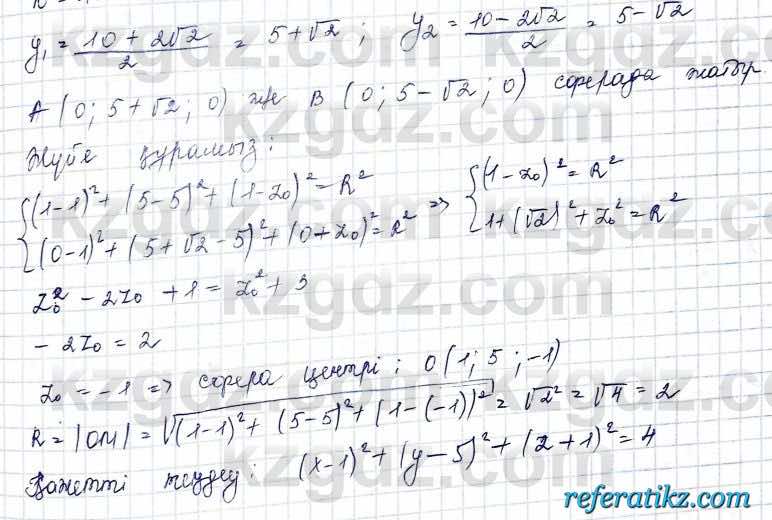 y₁ = (10 + 2√2)/2 = 5 + √2 ; y₂ = (10 - 2√2)/2 = 5 - √2
A (0; 5 + √2; 0) және B (0; 5 - √2; 0) сферада жатыр.
Жүйе құрамыз:
{(1-1)² + (5-5)² + (1-z₀)² = R² => {(1-z₀)² = R²
{(0-1)² + (5+√2-5)² + (0+z₀)² = R² {1+(√2)² + z₀² = R²
z₀² - 2z₀ + 1 = z₀² + 3
- 2z₀ = 2
z₀ = -1 => сфера центрі ; O(1; 5; -1)
R = |OM| = √((1-1)² + (5-5)² + (1-(-1))²) = √2² = √4 = 2
Қажетті теңдеу : (x-1)² + (y-5)² + (z+1)² = 4
kzgdz.com
referatikz.com